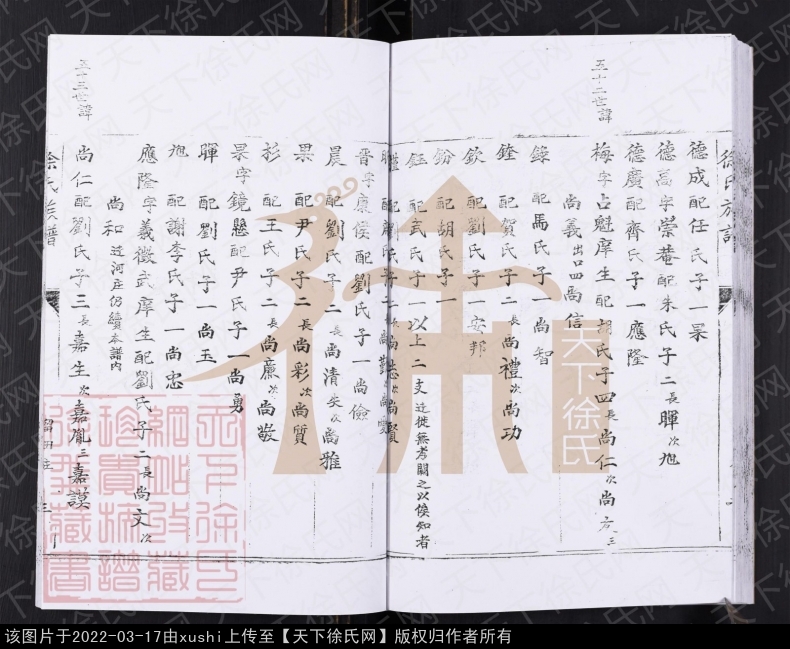 五十二世諱
徐氏族譜
德成配任氏子一果
德高字崇菴配朱氏子二長暉次旭
德廣配齊氏子一應隆
梅字占魁庠生配胡氏子四長尚仁次尚友三
尚義出口四尚信
錄配馬氏子一尚智
鏜配賀氏子二長尚禮次尚功
欽配劉氏子一安邦
鈖配胡氏子一
鈺配武氏子一以上二支迁徙無考闕之以俟知者
配氏子二尚志次尚賢
晋字康侯配劉氏子一尚儉
五十三世諱
晨配劉氏子二長尚清失次尚雅
果配尹氏子二長尚彩次尚質
杉配王氏子二長尚廉次尚敬
杲字鏡懸配尹氏子一尚勇
暉配劉氏子一尚玉
旭配謝李氏子一尚忠
應隆字義徵武庠生配劉氏子二長尚文次
尚和迁河庄仍續本譜内
尚仁配劉氏子三長嘉生次嘉胤三嘉謨
徐氏族譜
留田庄
三
天下徐氏
天下徐氏網站收藏珍貴族譜徐運生藏書
天下徐氏网
该图片于2022-03-17由xushi上传至【天下徐氏网】版权归作者所有